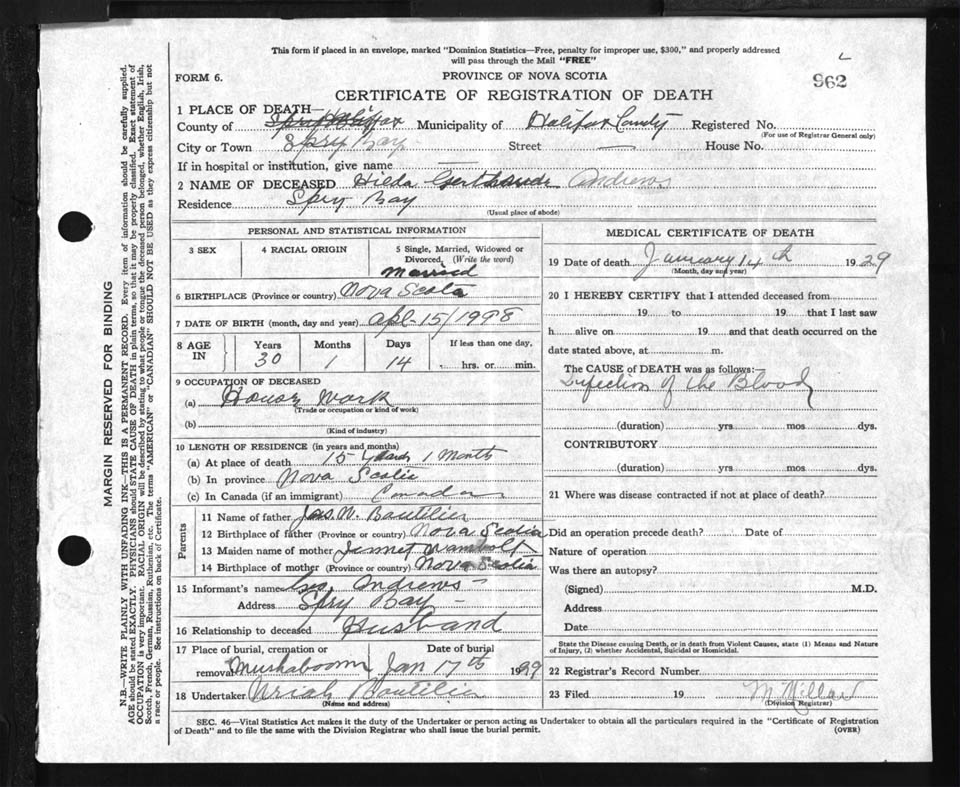 This form if placed in an envelope, marked "Dominion Statistics—Free, penalty for improper use, $300," and properly addressed
will pass through the Mail "FREE"
962
FORM 6.
PROVINCE OF NOVA SCOTIA
CERTIFICATE OF REGISTRATION OF DEATH
1 PLACE OF DEATH—
County of Halifax Municipality of Halifax County Registered No.
(For use of Registrar General only)
City or Town Spry Bay Street — House No.
If in hospital or institution, give name —
2 NAME OF DECEASED Hilda Andrews
Residence Spry Bay
(Usual place of abode)
PERSONAL AND STATISTICAL INFORMATION
3 SEX
4 RACIAL ORIGIN
5 Single, Married, Widowed or
Divorced, (Write the word)
Married
6 BIRTHPLACE (Province or country) Nova Scotia
7 DATE OF BIRTH (month, day and year) Apl-15/1998
8 AGE IN
Years Months Days If less than one day,
30 1 14 hrs. or min.
9 OCCUPATION OF DECEASED
(a) House Work
(Trade or occupation or kind of work)
(b)
(Kind of industry)
10 LENGTH OF RESIDENCE (in years and months)
(a) At place of death 15 years 1 Month
(b) In province Nova Scotia
(c) In Canada (if an immigrant) Canada
Parents
11 Name of father Jas. M. Boutilier
12 Birthplace of father (Province or country) Nova Scotia
13 Maiden name of mother Jennet Wambolt
14 Birthplace of mother (Province or country) Nova Scotia
15 Informant's name Geo Andrews —
Address Spry Bay —
16 Relationship to deceased Husband
17 Place of burial, cremation or
removal Mushaboom
Date of burial
Jan 17th 1929
18 Undertaker Uriah Boutilier
(Name and address)
MEDICAL CERTIFICATE OF DEATH
19 Date of death January 14th 1929
(Month, day and year)
20 I HEREBY CERTIFY that I attended deceased from
19 to 19 that I last saw
h alive on 19 and that death occurred on the
date stated above, at m.
The CAUSE of DEATH was as follows:—
Infection of the Blood
(duration) yrs mos dys.
CONTRIBUTORY
(duration) yrs. mos. dys.
21 Where was disease contracted if not at place of death?
Did an operation precede death? Date of
Nature of operation
Was there an autopsy?
(Signed) M.D.
Address
Date
State the Disease causing Death, or in death from Violent Causes, state (1) Means and Nature
of Injury, (2) whether Accidental, Suicidal or Homicidal.
22 Registrar's Record Number
23 Filed 19 M. Millar
(Division Registrar)
SEC. 46—Vital Statistics Act makes it the duty of the Undertaker or person acting as Undertaker to obtain all the particulars required in the "Certificate of Registration
of Death" and to file the same with the Division Registrar who shall issue the burial permit.
(OVER)
MARGIN RESERVED FOR BINDING
N.B.—WRITE PLAINLY WITH UNFADING INK—THIS IS A PERMANENT RECORD. Every item of information should be carefully supplied.
AGE should be stated EXACTLY. PHYSICIANS should STATE CAUSE OF DEATH in plain terms, so that it may be properly classified. Exact statement of
OCCUPATION is very important. RACIAL ORIGIN will be described by stating to what people or tongue the deceased person belonged, whether English, Irish,
Scotch, French, German, Russian, Ruthenian, etc. The terms "AMERICAN" or "CANADIAN" SHOULD NOT BE USED as they express citizenship but not
a race or people. See instructions on back of Certificate.